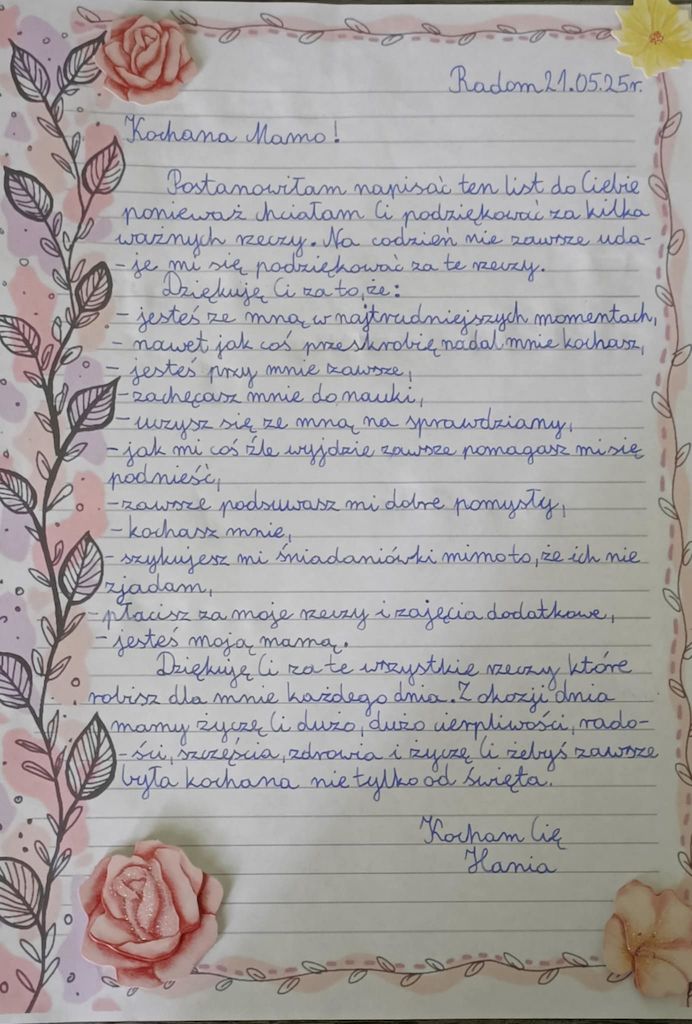 Radom 21.05.25r.
Kochana Mamo!
Postanowiłam napisać ten list do Ciebie
ponieważ chciałam Ci podziękować za kilka
ważnych rzeczy. Na codzień nie zawsze uda-
- je mi się podziękować za te rzeczy.
Dziękuję Ci za to, że:
- jesteś ze mną w najtrudniejszych momentach,
- nawet jak coś przeskrobię nadal mnie kochasz,
- jesteś przy mnie zawsze,
- zachęcasz mnie do nauki,
- uczysz się ze mną na sprawdziany,
- jak mi coś źle wyjdzie zawsze pomagasz mi się
podnieść,
- zawsze podsuwasz mi dobre pomysły,
- kochasz mnie,
- szykujesz mi śniadaniówki mimo to, że ich nie
zjadam,
- płacisz za moje rzeczy i zajęcia dodatkowe,
- jesteś moją mamą.
Dziękuję Ci za te wszystkie rzeczy które
robisz dla mnie każdego dnia. Z okozji dnia
mamy życzę Ci dużo, dużo cierpliwości, rado-
- ści, szczęścia, zdrowia i życzę Ci żebyś zawsze
była kochana nie tylko od święta.
Kocham Cię
Hania